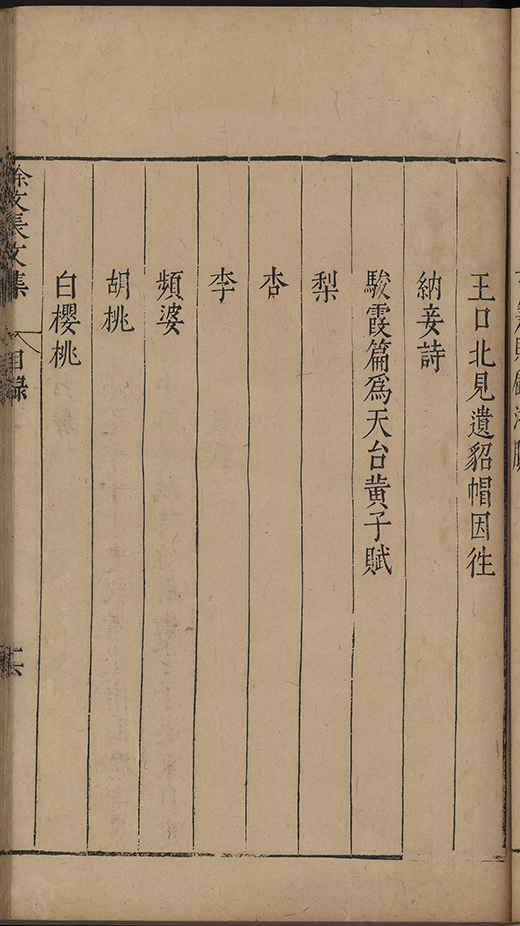 王口北見遺貂帽因徃
納妾詩
駿霞篇爲天台黃子賦
梨
杏
李
頻婆
胡桃
白櫻桃
徐文長文集
目録